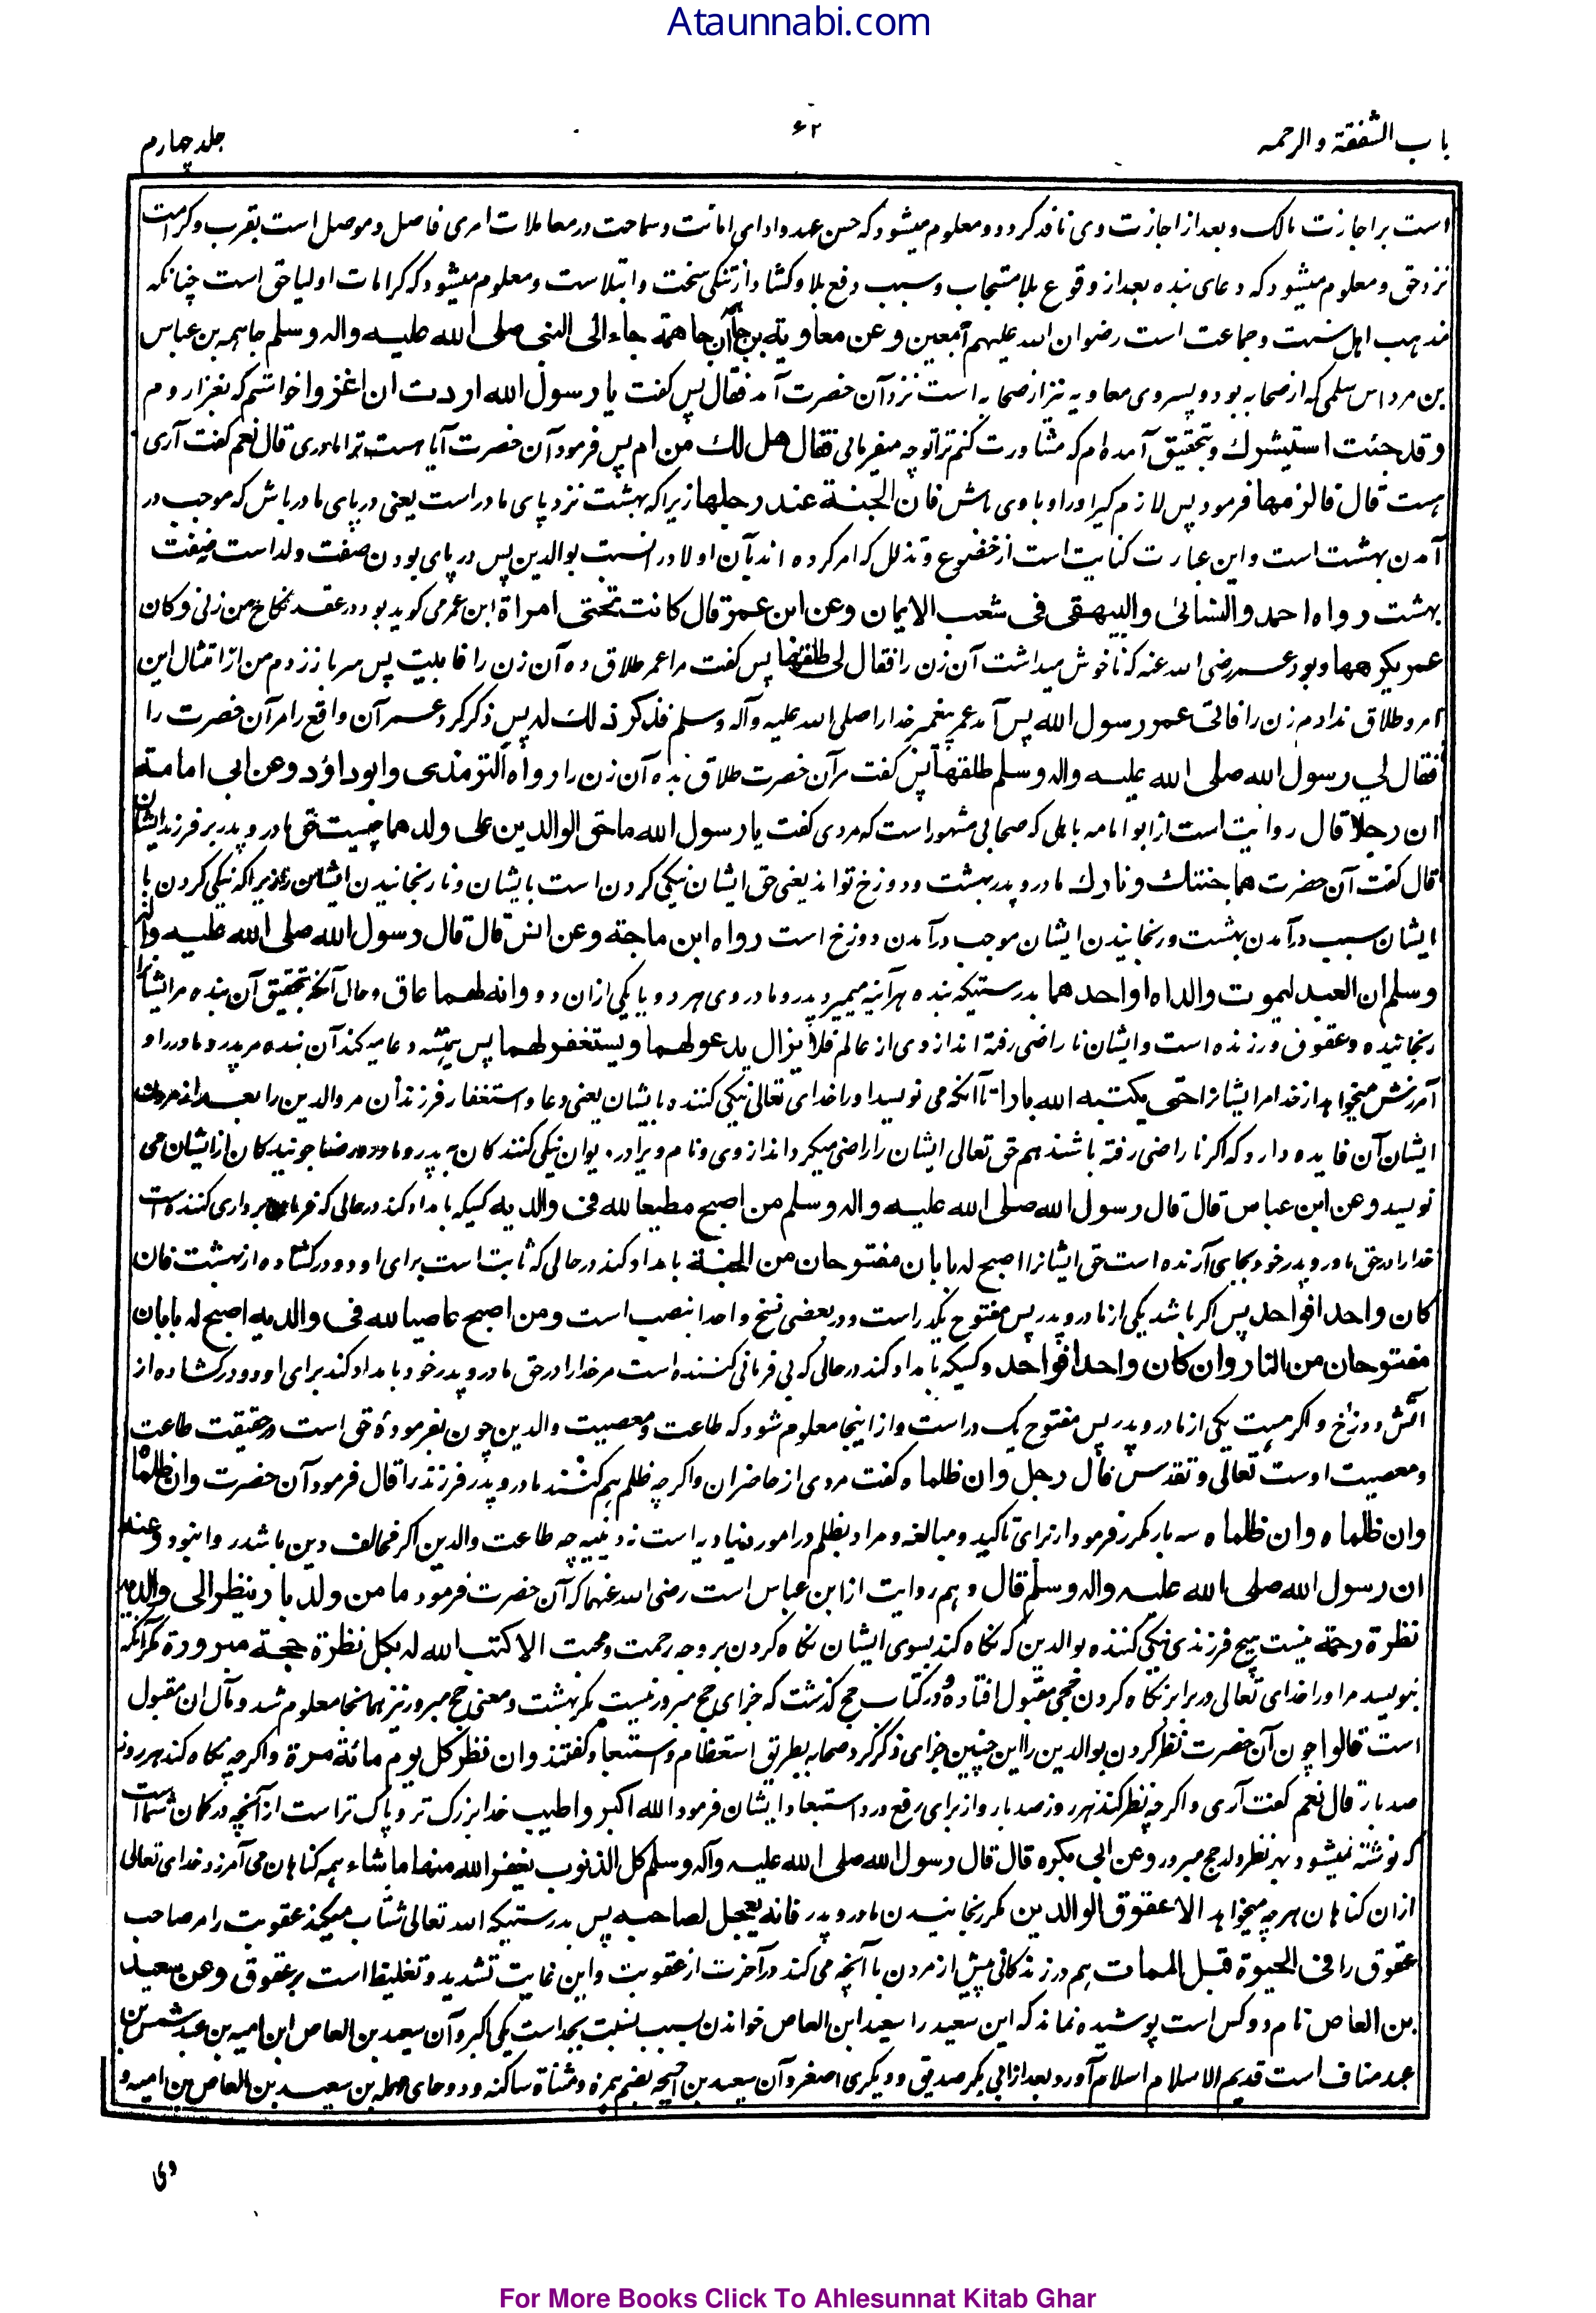 Ataunnabi.com
باب الشفقة والرحمه
جلد چهارم
است بر اجازت مالک و بعد از اجازت وی نافذ کردد و معلوم میشود که حسن عهد و ادای امانت و سماحت در معاملات امری فاضل و موصل است بقرب و کرامت
نزد حق و معلوم میشود که دعای بنده بعد از وقوع بلا مستجاب و سبب دفع بلا و کشاد از تنکی سخت و ابتلاست و معلوم میشود که کرامات اولیا حق است چنانکه
مذهب اهل سنت و جماعت است رضوان الله علیهم اجمعین وعن معاوية بن جاهمة ان جاهمة جاء الى النبى صلى الله عليه واله وسلم جاهمه بن عباس
بن مرداس سلمی که از صحابه بود و پسر وی معاویه نیز از صحابه است نزد آن حضرت آمد فقال پس کفت يا رسول الله اردت ان اغزو اخواستم که بغزا روم
وقد جئت استيشرك و بتحقیق آمده ام که مشاورت کنم ترا تو چه میفرمائی فقال هل لك من ام پس فرمود آن حضرت آیا هست ترا مادری قال نعم کفت آری
هست قال فالزمها فرمود پس لازم کیر او را و با وی باش فان الجنة عند رجلها زیرا که بهشت نزد پای مادر است یعنی در پای مادر باش که موجب در
آمدن بهشت است و این عبارت کنایت است از خضوع و تذلل که امر کرده اند بآن اولاد را نسبت بوالدین پس در پای بودن صفت ولد است نه صفت
بهشت رواه احمد والنسائى والبيهقى فى شعب الايمان وعن ابن عمر قال كانت تحتى امراة ابن عمر می کوید بود در عقد نکاح من زنی وكان
عمر يكرهها و بود عمر رضی الله عنه که ناخوش میداشت آن زن را فقال لى طلقها پس کفت مرا عمر طلاق ده آن زن را فابيت پس سر باز زدم من از امتثال این
امر و طلاق ندادم زن را فاتى عمر رسول الله پس آمد عمر پیغمبر خدا را صلی الله علیه وآله وسلم فذكر ذلك له پس ذکر کرد عمر آن واقع را مر آن حضرت را
فقال لى رسول الله صلى الله عليه واله وسلم طلقها پس کفت مرا آن حضرت طلاق بده آن زن را رواه الترمذى وابو داؤد وعن ابى امامة
ان رجلا قال روایت است از ابو امامه باهلی که صحابی مشهور است که مردی کفت يا رسول الله ما حق الوالدين على ولدهما چیست حق مادر و پدر بر فرزند ایشان
قال کفت آن حضرت هما جنتك ونارك مادر و پدر بهشت و دوزخ تو اند یعنی حق ایشان نیکی کردن است بایشان و نا رنجانیدن ایشان زیرا که نیکی کردن با
ایشان سبب درآمدن بهشت و رنجانیدن ایشان موجب درآمدن دوزخ است رواه ابن ماجة وعن انس قال قال رسول الله صلى الله عليه واله
وسلم ان العبد ليموت والداه او احدهما بدرستیکه بنده هر آینه میمیرد پدر و مادر وی هر دو یا یکی ازان دو وانه لهما عاق و حال آنکه بتحقیق آن بنده مر ایشانرا
رنجانیده و عقوق ورزنده است و ایشان ناراضی رفته اند از وی از عالم فلا يزال يدعو لهما ويستغفر لهما پس همیشه دعا میکند آن بنده مر پدر و مادر را و
آمرزش میخواهد از خدا مر ایشانرا حتى يكتبه الله بارا تا آنکه می نویسد او را خدای تعالی نیکی کننده بایشان یعنی دعا و استغفار فرزندان مر والدین را بعد از مردن
ایشان آن فایده دارد که اکر ناراضی رفته باشند هم حق تعالی ایشان را راضی میکرداند از وی و نام ویرا در دیوان نیکی کنندکان به پدر و مادر و رضا جویندکان از ایشان می
نویسد وعن ابن عباس قال قال رسول الله صلى الله عليه واله وسلم من اصبح مطيعا لله فى والديه کسیکه بامداد کند در حالی که فرمان برداری کننده است
خدا را در حق مادر و پدر خود بجای آرنده است حق ایشانرا اصبح له بابان مفتوحان من الجنة بامداد کند در حالی که ثابت است برای او دو در کشاده از بهشت فان
كان واحدا فواحد پس اکر باشد یکی از مادر و پدر پس مفتوح یکدر است و در بعضی نسخ واحدا بنصب است ومن اصبح عاصيا لله فى والديه اصبح له بابان
مفتوحان من النار وان كان واحدا فواحد و کسیکه بامداد کند در حالی که بی فرمانی کننده است مر خدا را در حق مادر و پدر خود بامداد کند برای او دو در کشاده از
آتش دوزخ و اکر هست یکی از مادر و پدر پس مفتوح یک در است و از اینجا معلوم شود که طاعت و معصیت والدین چون بفرموده حق است در حقیقت طاعت
و معصیت اوست تعالی و تقدس قال رجل وان ظلماه کفت مردی از حاضران و اکر چه ظلم هم کنند مادر و پدر فرزند را قال فرمود آن حضرت وان ظلماه
وان ظلماه وان ظلماه سه بار مکرر فرمود از برای تاکید و مبالغه و مراد بظلم در امور دنیاویه است نه دینیه چه طاعت والدین اکر مخالف دین باشد روا نبود وعنه
ان رسول الله صلى الله عليه واله وسلم قال و هم روایت از ابن عباس است رضی الله عنهما که آن حضرت فرمود ما من ولد بار ينظر الى والديه
نظرة رحمة نیست هیچ فرزندی نیکی کننده بوالدین که نکاه کند بسوی ایشان نکاه کردن بر وجه رحمت و محبت الا كتب الله له بكل نظرة حجة مبرورة مکر آنکه
بنویسد مر او را خدای تعالی در برابر نکاه کردن حجی مقبول افتاده و در کتاب حج کذشت که جزای حج مبرور نیست مکر بهشت و معنی حج مبرور نیز همانجا معلوم شد و مآل ان مقبول
است قالوا چون آن حضرت نظر کردن بوالدین را این چنین جزای ذکر کرد صحابه بطریق استعظام و استبعاد کفتند وان نظر كل يوم مائة مرة و اکر چه نکاه کند هر روز
صد بار قال نعم کفت آری و اکر چه نظر کند هر روز صد بار و از برای رفع و رد استبعاد ایشان فرمود الله اكبر واطيب خدا بزرک تر و پاک تر است از آنچه در کمان شما است
که نوشته نمیشود بهر نظر ولد حج مبرور وعن ابى بكره قال قال رسول الله صلى الله عليه وآله وسلم كل الذنوب يغفر الله منها ما شاء همه کناهان می آمرزد خدای تعالی
ازان کناهان هر چه میخواهد الا عقوق الوالدين مکر رنجانیدن مادر و پدر فانه يعجل لصاحبه پس بدرستیکه الله تعالی شتاب میکند عقوبت را مر صاحب
عقوق را فى الحيوة قبل الممات هم در زندکانی پیش از مردن با آنچه می کند در آخرت از عقوبت و این غایت تشدید و تغلیظ است بر عقوق وعن سعيد
بن العاص نام دو کس است پوشیده نماند که این سعید را سعید ابن العاص خواندن بسبب نسبت بجد است یکی اکبر و آن سعید بن العاص ابن امیه بن عبد شمس بن
عبد مناف است قدیم الاسلام اسلام آورد بعد از ابی بکر صدیق و دیکری اصغر و آن سعید بن احیحه بضم همزه و مثناة ساکنه و دو حای مهمله بن سعید بن العاص بن امیه و
وی
For More Books Click To Ahlesunnat Kitab Ghar